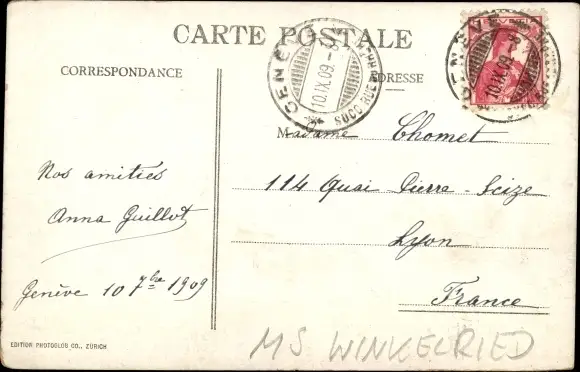 CARTE POSTALE
CORRESPONDANCE
ADRESSE
GENÈVE
10.IX.09
SUCC. RUE
GENÈVE
10.IX.09
HELVETIA
Madame Chomet
114 Quai Pierre-Scize
Lyon
France
Nos amitiés
Anna Guillot
Genève 10 7bre 1909
EDITION PHOTOGLOB CO., ZÜRICH
MS WINKELRIED